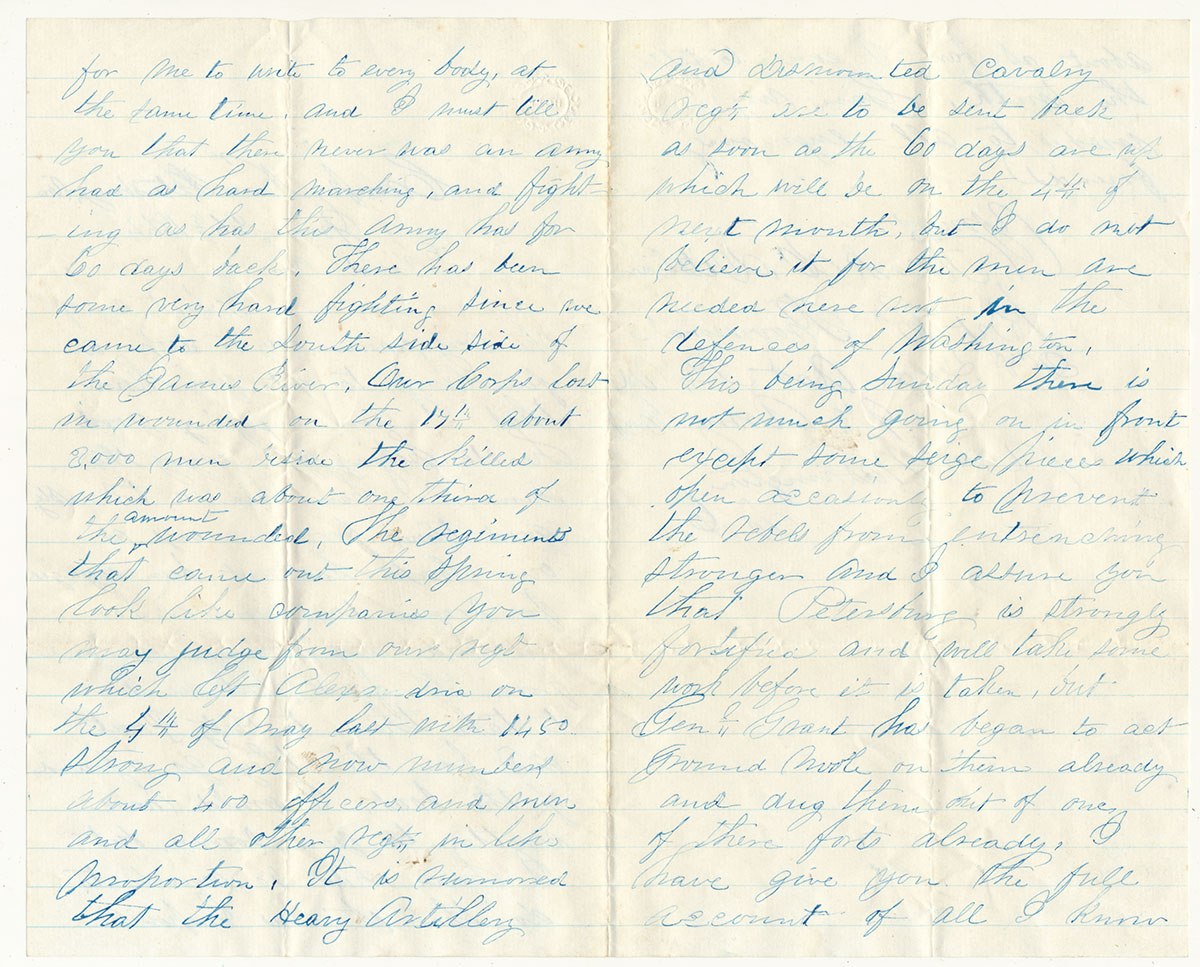 for me to write to every body, at
the same time, and I must till
you that there never was an army
had as hard marching, and fight
ing as has this army has for
60 days back. There has been
some very hard fighting since we
came to the South side side of
the James River. Our Corps lost
in wounded on the 17th about
8,000 men beside the killed
which was about one third of
the amount wounded. The regiments
that came out this Spring
look like companies you
may judge from our regt
which left Alexandria on
the 4th of May last with 1450
strong and now numbers
about 400 officers and men
and all other regts in like
proportion. It is rumored
that the Heavy Artillery
and Dismounted Cavalry
regts are to be sent back
as soon as the 60 days are up
which will be on the 4th of
next month, but I do not
believe it for the men are
needed here not in the
defences of Washington.
This being Sunday there is
not much going on in front
except some seige pieces which
open occasionly to prevent
the rebels from entrenching
stronger and I assure you
that Petersburg is strongly
fortified and will take some
work before it is taken, but
Genl Grant has began to act
Ground Mole on them already
and dug them out of one
of there forts already. I
have give you the full
account of all I know